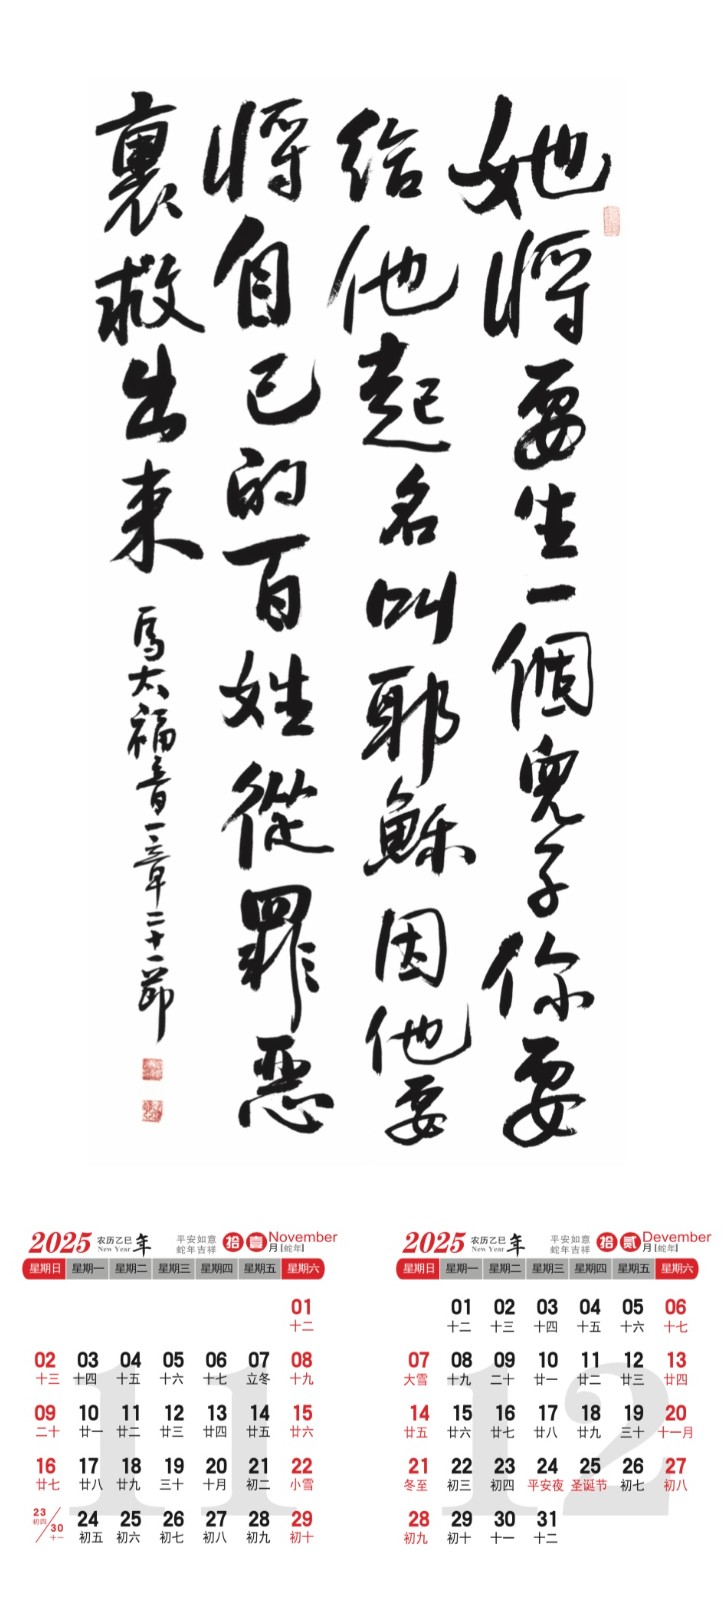 她將要生一個兒子你要
給他起名叫耶穌因他要
將自己的百姓從罪惡
裏救出來
馬太福音一章二十一節
2025 农历乙巳 New Year 年 平安如意 蛇年吉祥 拾壹月 November [蛇年]
星期日 星期一 星期二 星期三 星期四 星期五 星期六
01
十二
02 03 04 05 06 07 08
十三 十四 十五 十六 十七 立冬 十九
09 10 11 12 13 14 15
二十 廿一 廿二 廿三 廿四 廿五 廿六
16 17 18 19 20 21 22
廿七 廿八 廿九 三十 十月 初二 小雪
23/30 24 25 26 27 28 29
初四/十一 初五 初六 初七 初八 初九 初十
11
2025 农历乙巳 New Year 年 平安如意 蛇年吉祥 拾贰月 Devember [蛇年]
星期日 星期一 星期二 星期三 星期四 星期五 星期六
01 02 03 04 05 06
十二 十三 十四 十五 十六 十七
07 08 09 10 11 12 13
大雪 十九 二十 廿一 廿二 廿三 廿四
14 15 16 17 18 19 20
廿五 廿六 廿七 廿八 廿九 三十 十一月
21 22 23 24 25 26 27
冬至 初三 初四 平安夜 圣诞节 初七 初八
28 29 30 31
初九 初十 十一 十二
12